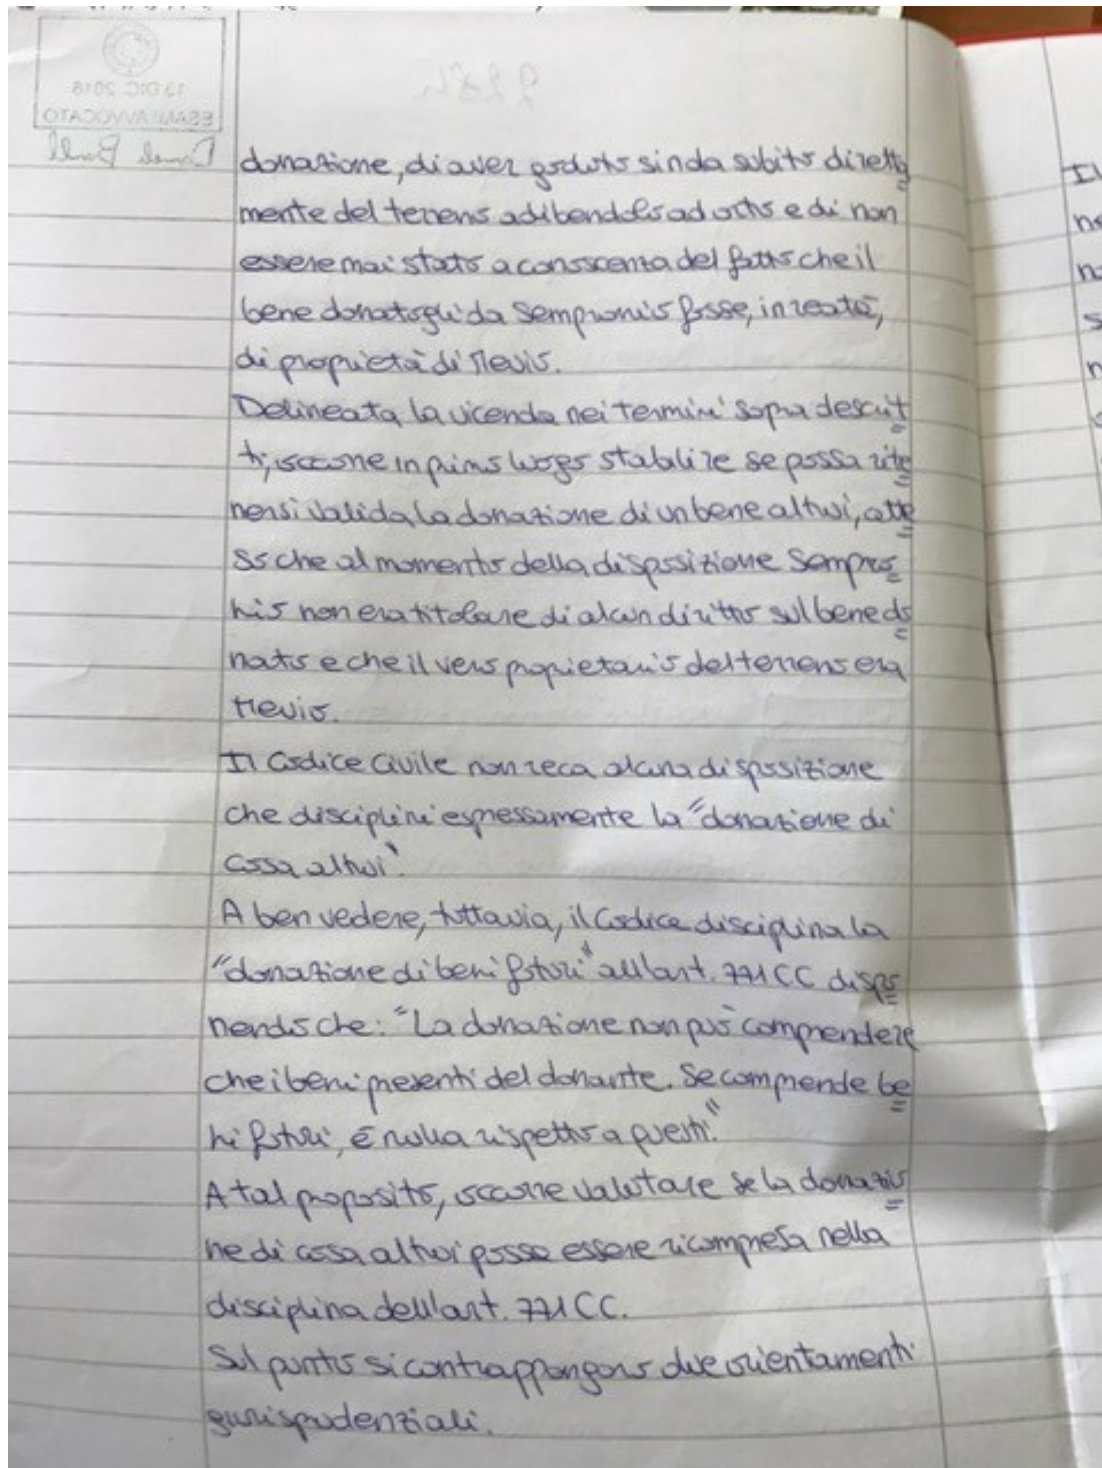 donazione, di aver goduto sin da subito diretta
mente del terreno adibendolo ad orto e di non
essere mai stato a conoscenza del fatto che il
bene donatogli da Sempronio fosse, in realtà,
di proprietà di Mevio.
Delineata la vicenda nei termini sopra descrit
ti, occorre in primo luogo stabilire se possa rite
nersi valida la donazione di un bene altrui, atte
so che al momento della disposizione Sempro
nio non era titolare di alcun diritto sul bene do
nato e che il vero proprietario del terreno era
Mevio.
Il Codice Civile non reca alcuna disposizione
che disciplini espressamente la "donazione di
cosa altrui".
A ben vedere, tuttavia, il Codice disciplina la
"donazione di beni futuri" all'art. 771 CC dispo
nendo che: "La donazione non può comprendere
che i beni presenti del donante. Se comprende be
ni futuri, è nulla rispetto a questi."
A tal proposito, occorre valutare se la donazio
ne di cosa altrui possa essere ricompresa nella
disciplina dell'art. 771 CC.
Sul punto si contrappongono due orientamenti
giurisprudenziali.
13 DIC 2018
ESAMI AVVOCATO